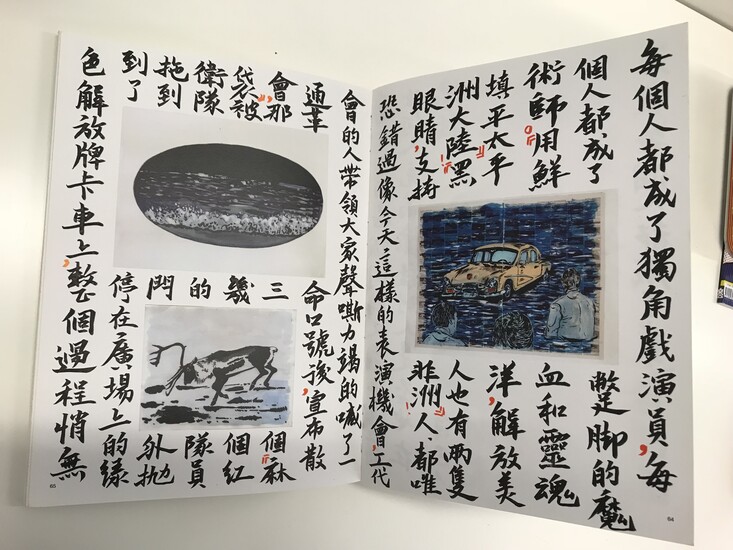 每個人都成了獨角戲演員,每
個人都成了蹩脚的魔
術師。用鮮血和靈魂
填平太平洋,解放美
洲大陸!黑人也有兩隻
眼睛,支持非洲人!都唯
恐錯過像今天這樣的表演機會,工代
64
會的人帶領大家聲嘶力竭的喊了一
通革命口號後,宣布散
會,那三個麻
袋被幾個紅
衛隊的隊員
拖到門外抛
到了停在廣場上的綠
色解放牌卡車上,整個過程悄無
65